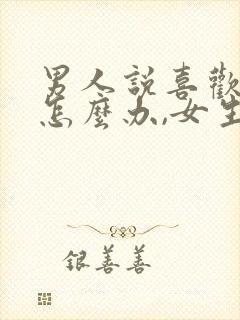 男人說喜歡
怎麼办,女生
銀善善